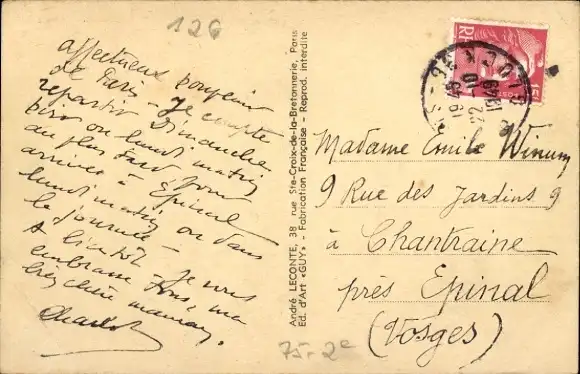 126
affectueux bonjour
de Paris - Je compte
repartir Dimanche
soir ou lundi matin
au plus tard pour
arriver à Epinal
lundi matin ou dans
la journée -
A bientôt. Je vous
embrasse tous, ma
très chère maman.
Charlot
André LECONTE, 38 rue Ste-Croix-de-la-Bretonnerie, Paris
Ed. d'Art «GUY» - Fabrication Française - Reprod. interdite
75-2e
Madame Emile Winum
9 Rue des Jardins 9
à Chantraine
près Epinal
(Vosges)